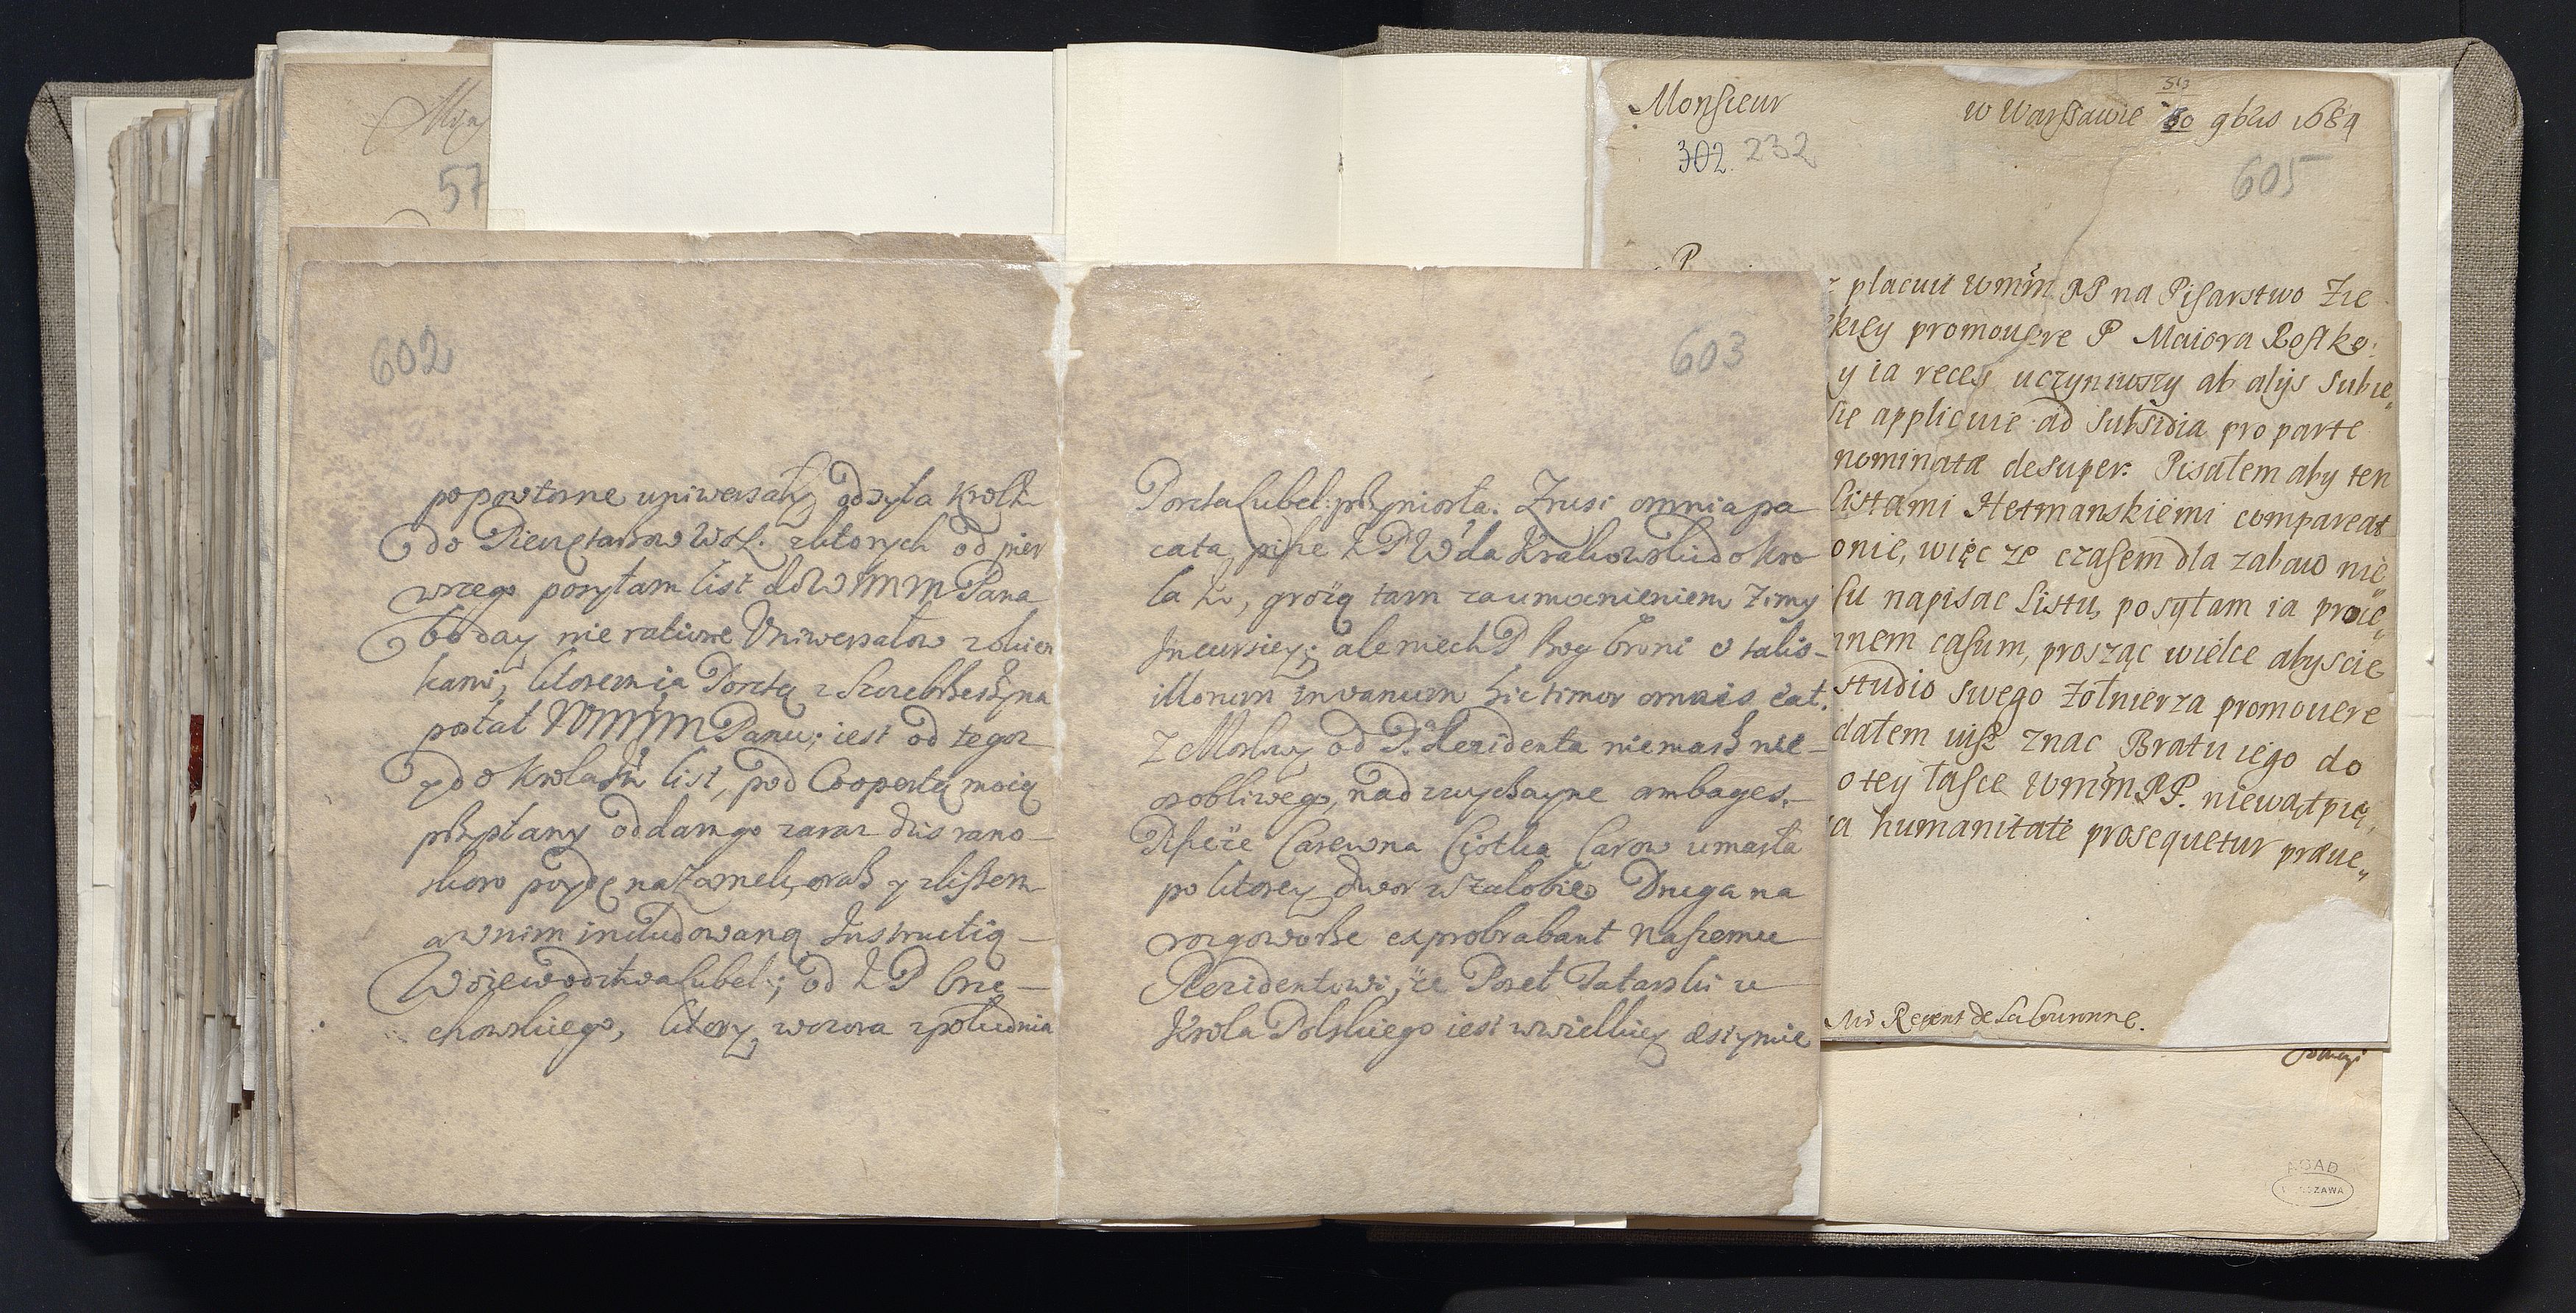 Mon
57
602
popowtorne uniwersały odsyła Krol Jm
do Pieczętarzow WXL. zktorych od pier
wszego posyłam list do Wmm Pana
boday nie ratione Uniwersałow zokien
kami, ktorem ia Pocztą z Szczebrzeszyna
posłał Wmmm Panu; iest od tegoz
y do Krola Jm list, pod Coopertą moią
przysłany oddam go zaraz dis rano
skoro poydę na Zamek, oraz y zlistem
a wnim includowaną Instructią
Woiewodztwa Lubel:; od J P Orze
chowskiego, ktory wczora zpołudnia
603
Poczta Lubel: przyniosła. Z Rusi omnia pa
cata, pisze J P Wda Krakowski do Kro
la Jm, grożą tam zaumocnieniem Zimy
Incursiey; ale niech P Bog broni a talis
illorum in vanum hic timor omnis eat.
Z Moskwy od P. Rezidenta niemasz nic
osobliwego, nad zwyczayne ambages.
Pisze że Carewna Ciotka Carow umarła
po ktorey dwor w żałobie. Druga na
rozgoworze exprobrabant Naszemu
Rezidentowi, że Poseł Tatarski u
Krola Polskiego iest w wielkiey estymie
Monsieur
w Warszawie 30 9bris 1684
302. 232
605
P
placuit Wmm PP na Pisarstwo Zie
kiey promovere P Maiora Rostko:
y ia recess uczyniwszy ab alijs subie„
się applicuie ad subsidia pro parte
nominata desuper. Pisałem aby ten
listami Hetmanskiemi compareat
onie, więc że czasem dla zabaw nie
su napisac Listu, posyłam ia proie„
nnem casum, prosząc wielce abyscie
studio swego żołnierza promovere
dałem iusz znac Bratu iego do
o tey łasce Wmm PP. niewątpię,
a humanitate prosequetur præue„
Regent de la Couronne.
AGAD
WARSZAWA